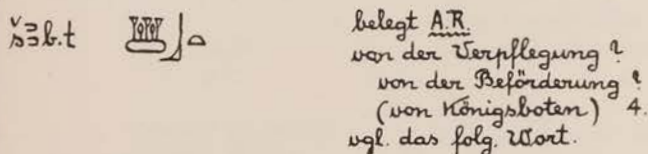 šꜣb.t 𓆷𓃀𓏏 belegt A.R.
von der Verpflegung ?
von der Beförderung ?
(von Königsboten) 4.
vgl. das folg. Wort.